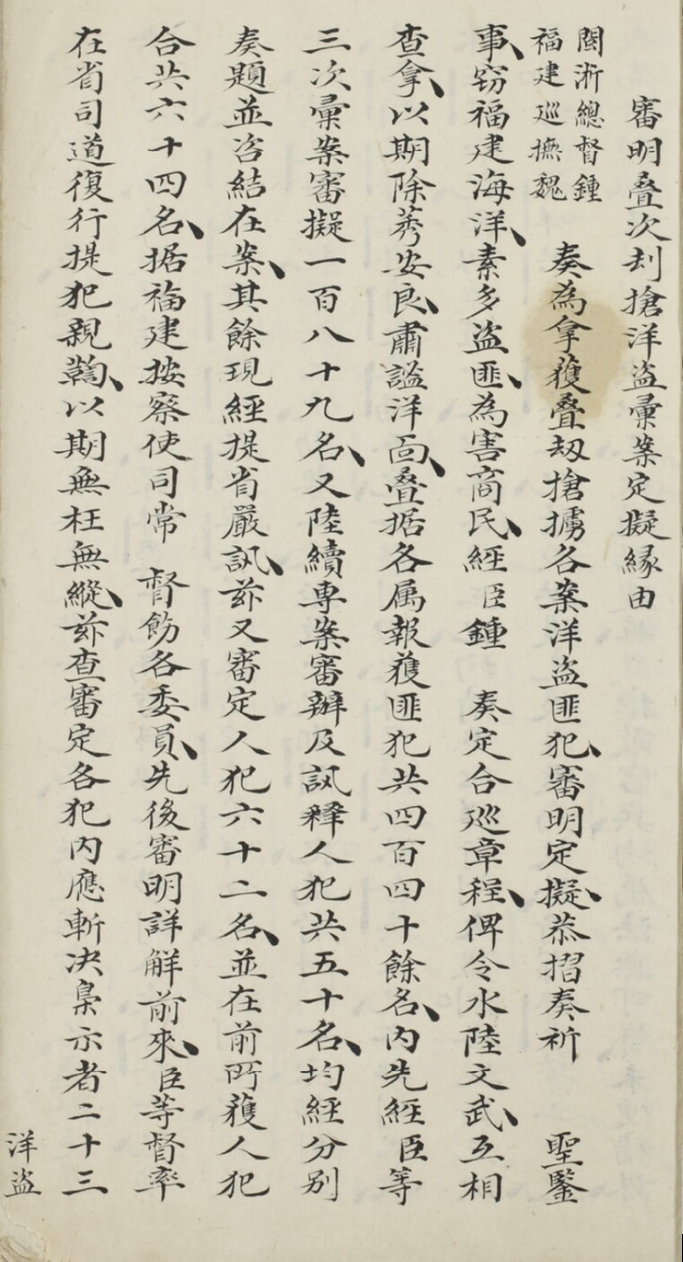 審明叠次刦搶洋盜彙案定擬緣由
閩浙總督鍾
福建巡撫魏
奏為拿獲叠刼搶擄各案洋盜匪犯審明定擬恭摺奏祈 聖鑒
事窃福建海洋素多盜匪為害商民經臣鍾 奏定合巡章程俾令水陸文武互相
查拿以期除莠安良肅謐洋面叠据各属報獲匪犯共四百四十餘名内先經臣等
三次彙案審擬一百八十九名又陸續專案審辦及訊釋人犯共五十名均經分别
奏題並咨結在案其餘現經提省嚴訊茲又審定人犯六十二名並在前所獲人犯
合共六十四名据福建按察使司常 督飭各委員先後審明詳解前來臣等督率
在省司道復行提犯親鞫以期無枉無縱茲查審定各犯内應斬决梟示者二十三
洋盜